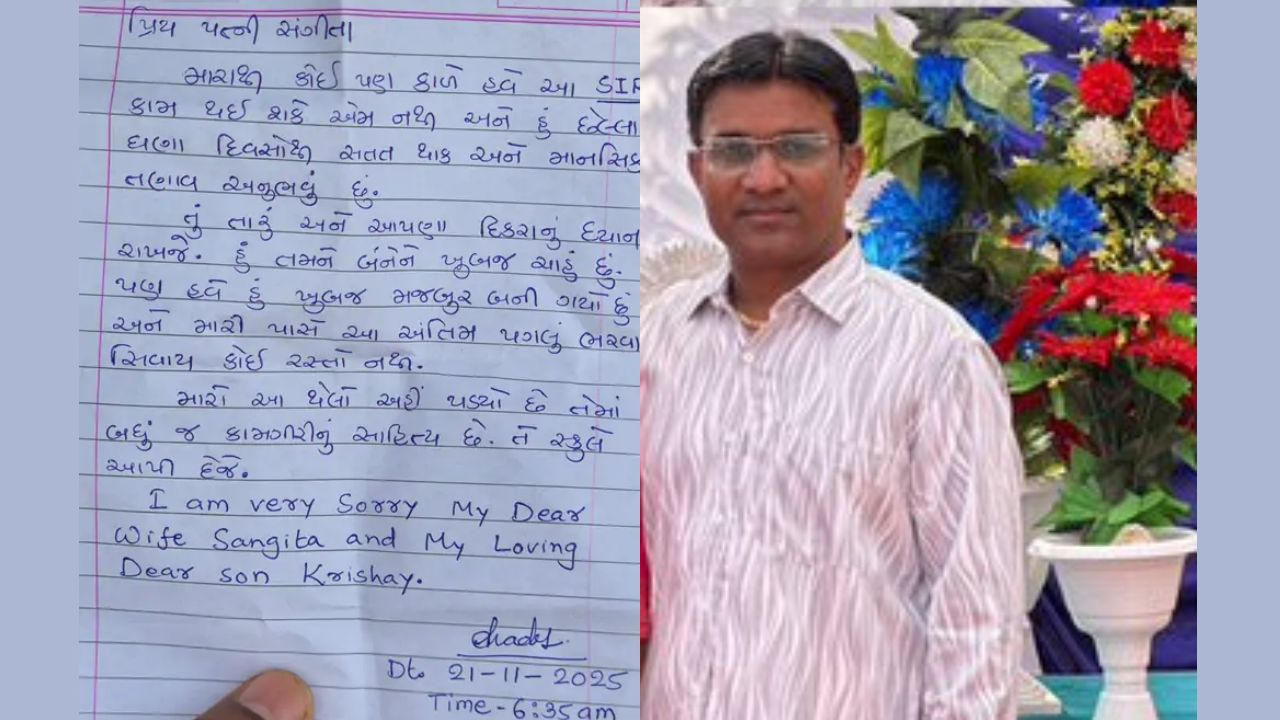 પ્રિય પત્ની સંગીતા
મારાથી કોઈ પણ કાળે હવે આ SIR
કામ થઈ શકે એમ નથી અને હું છેલ્લા
ઘણા દિવસોથી સતત થાક અને માનસિક
તણાવ અનુભવું છું.
તું તારું અને આપણા દિકરાનું ધ્યાન
રાખજે. હું તમને બંનેને ખુબજ ચાહું છું.
પણ હવે હું ખુબજ મજબુર બની ગયો છું
અને મારી પાસે આ અંતિમ પગલું ભરવા
સિવાય કોઈ રસ્તો નથી.
મારો આ થેલો અહીં પડ્યો છે તેમાં
બધું જ કામગીરીનું સાહિત્ય છે. તે સ્કુલે
આપી દેજે.
I am very Sorry My Dear
Wife Sangita and My Loving
Dear son Krishay.
Dt. 21-11-2025
Time-6:35am